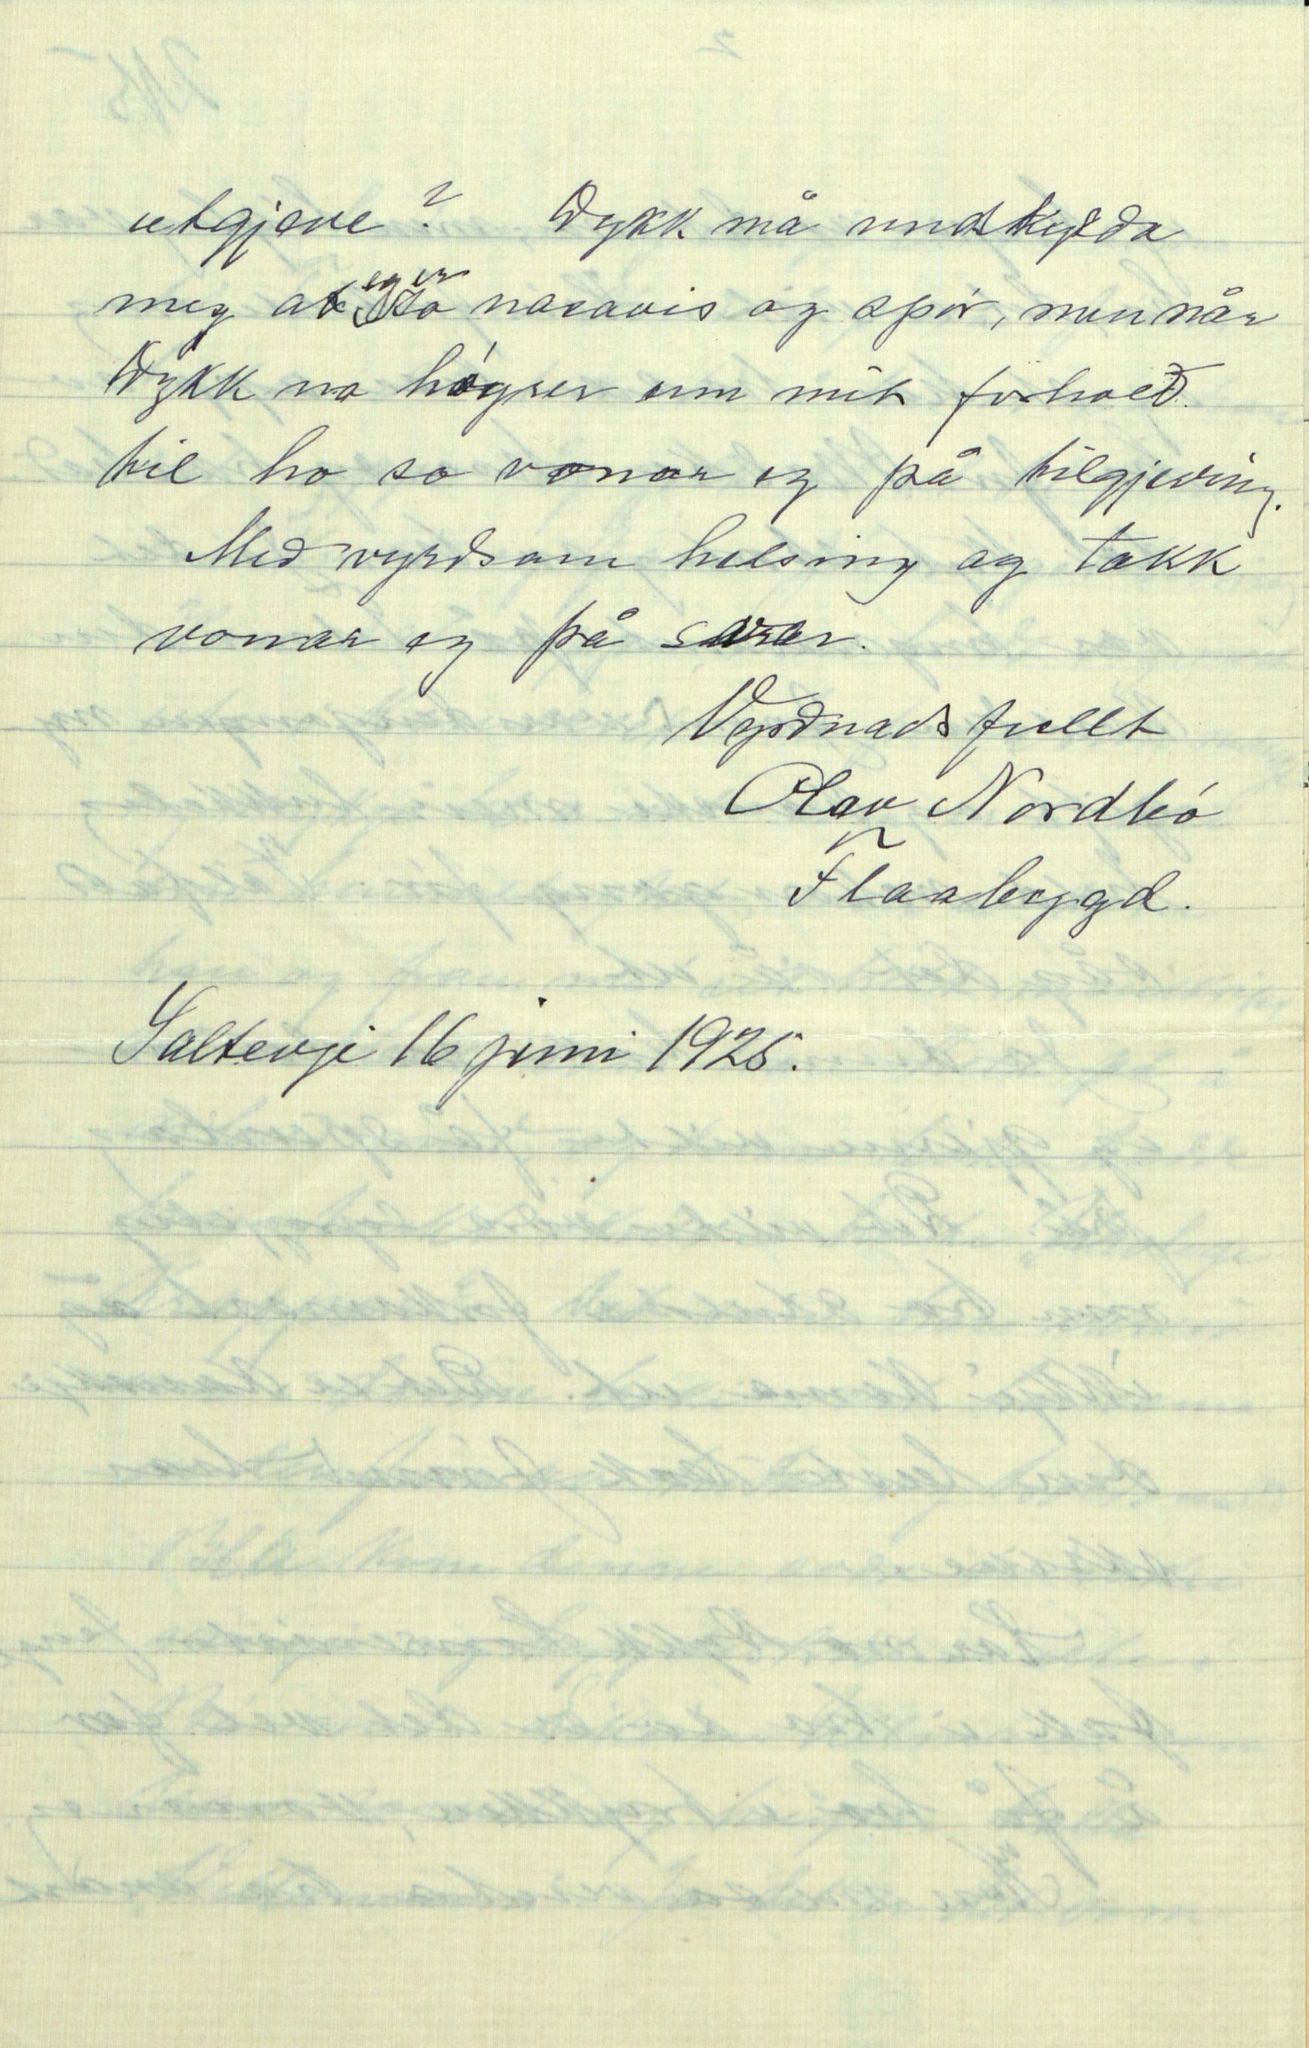 utgjeve? Dykk må undskylda
meg at eg er so naravis og spör, men når
Dykk no höyrer um mit forhold
til ho so vonar eg på tilgjeving.
Med vyrdsam helsing og takk
vonar eg på svar.
Vyrdnadsfullt
Olav Nordbö
Flaabygd.
Saltevje 16 juni 1925.